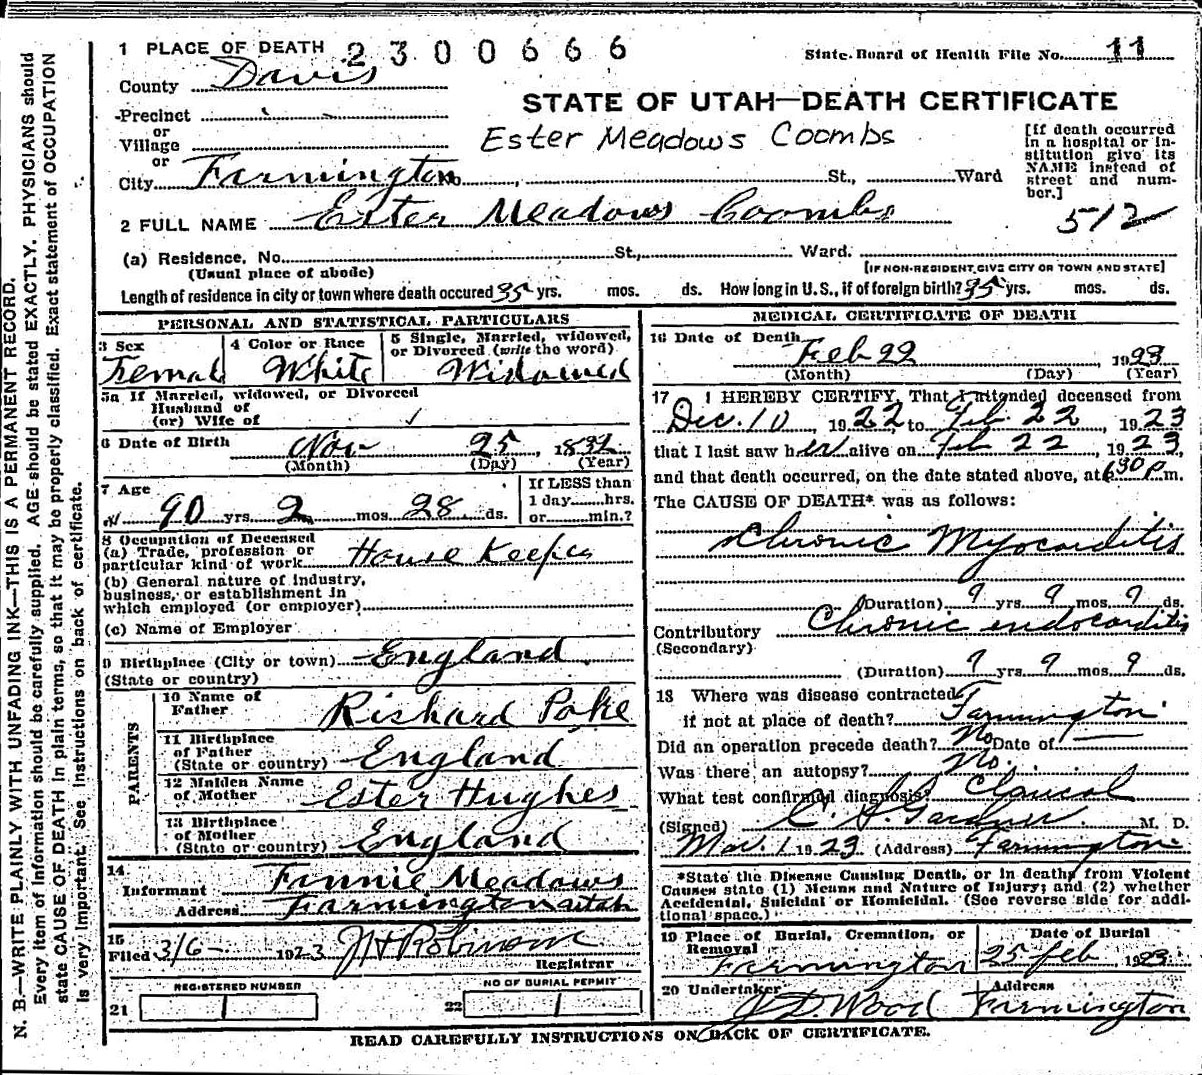 N. B.—WRITE PLAINLY WITH UNFADING INK—THIS IS A PERMANENT RECORD.
Every item of information should be carefully supplied. AGE should be stated EXACTLY. PHYSICIANS should
state CAUSE OF DEATH in plain terms, so that it may be properly classified. Exact statement of OCCUPATION
is very important. See instructions on back of certificate.
1 PLACE OF DEATH 2300666
State Board of Health File No. 11
County Davis
STATE OF UTAH—DEATH CERTIFICATE
Precinct
or
Village
Ester Meadows Coombs
or
City Farmington St., Ward
[If death occurred
in a hospital or in-
stitution give its
NAME instead of
street and num-
ber.]
512
2 FULL NAME Ester Meadows Coombs
(a) Residence, No. St., Ward.
(Usual place of abode) [IF NON-RESIDENT, GIVE CITY OR TOWN AND STATE]
Length of residence in city or town where death occured 35 yrs. mos. ds. How long in U.S., if of foreign birth? 35 yrs. mos. ds.
PERSONAL AND STATISTICAL PARTICULARS
3 Sex 4 Color or Race 5 Single, Married, widowed,
or Divorced (write the word)
Female White Widowed
5a If Married, widowed, or Divorced
Husband of
(or) Wife of
6 Date of Birth Nov 25, 1832
(Month) (Day) (Year)
7 Age If LESS than
1 day hrs.
or min.?
90 yrs. 2 mos. 28 ds.
8 Occupation of Deceased
(a) Trade, profession or
particular kind of work House Keeper
(b) General nature of industry,
business, or establishment in
which employed (or employer)
(c) Name of Employer
9 Birthplace (City or town) England
(State or country)
PARENTS
10 Name of
Father Rishard Poke
11 Birthplace
of Father
(State or country) England
12 Maiden Name
of Mother Ester Hughes
13 Birthplace
of Mother
(State or country) England
14
Informant Fannie Meadows
Address Farmington Utah
15
Filed 3/6- 1923 J H Robinson
Registrar
REGISTERED NUMBER NO OF BURIAL PERMIT
21 22
MEDICAL CERTIFICATE OF DEATH
16 Date of Death
Feb 22 1923
(Month) (Day) (Year)
17 I HEREBY CERTIFY, That I attended deceased from
Dec. 10, 1922, to Feb 22, 1923
that I last saw her alive on Feb 22, 1923,
and that death occurred, on the date stated above, at 630 P. m.
The CAUSE OF DEATH* was as follows:
Chronic Myocarditis
(Duration) ? yrs ? mos ? ds.
Contributory Chronic endocarditis
(Secondary)
(Duration) ? yrs ? mos ? ds.
18 Where was disease contracted
if not at place of death? Farmington
Did an operation precede death? No Date of
Was there an autopsy? No.
What test confirmed diagnosis? Clinical
(Signed) Gardner. M. D.
Mar. 1 1923 (Address) Farmington
*State the Disease Causing Death, or in deaths from Violent
Causes state (1) Means and Nature of Injury; and (2) whether
Accidental, Suicidal or Homicidal. (See reverse side for addi-
tional space.)
19 Place of Burial, Cremation, or Date of Burial
Removal
Farmington 25 Feb 1923
20 Undertaker Address
J D. Wood Farmington
READ CAREFULLY INSTRUCTIONS ON BACK OF CERTIFICATE.